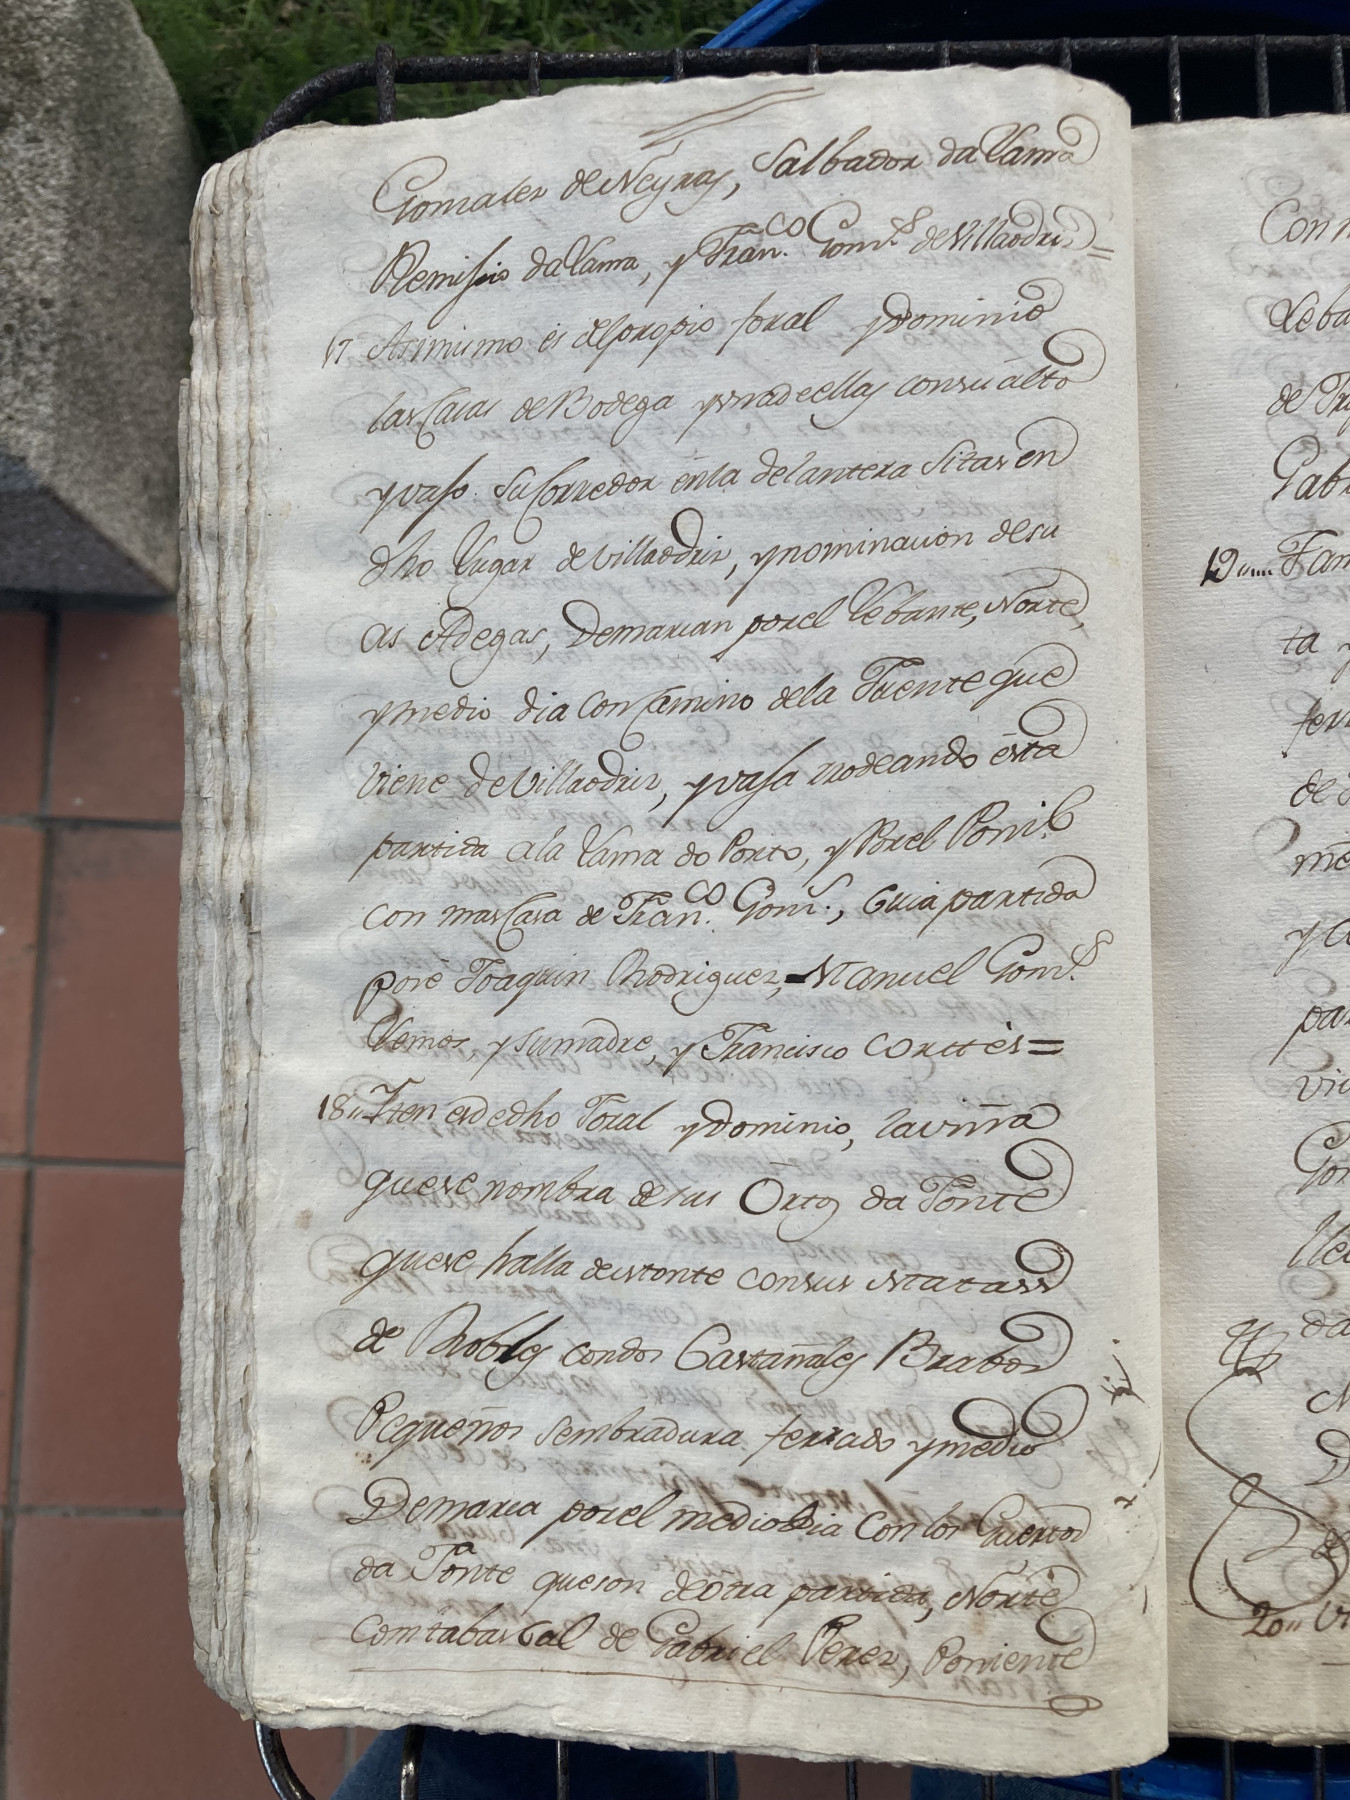 Gomales de Neyras, Salbador da Vama
Remisio da Vama, y Fran.co Gom.s de Villaodris=
17 Asimismo es del propio foral y dominio
las Casas de Bodega y una de ellas con su alto
y vaso su Corredor en la delantera Sitas en
dho Lugar de Villaodriz, y nominacion de su
as Adegas, Demarcan por el Lebante, Norte,
y medio dia con Camino de la Fuente que
viene de Villaodriz, y vasa rrodeando esta
partida a la Vama do Porto, y Por el Poni.e
con mas Casa de Fran.co Gom.s, Cuia partida
posê Joaquin Rodriguez, Manuel Gom.s
Lemos, y su madre, y Francisco Cortês=
18,, Iten es de dho Foral y dominio, la viña
que se nombra de sus Ortos da Fonte
que se halla de stonte con sus Matass
de Robles con dos Castañales Brabos
Pequeños sembradura ferrado y medio
Demarca por el mediodia Con los Guertos
da Fonte que son de otra partida, Norte
Com tabascal de Gabriel Perez, Poniente
Con
Leba
de
Gab
19,,.... Fam
ta
fer
de
me
y
pa
vi
Go
lle
da
20,,